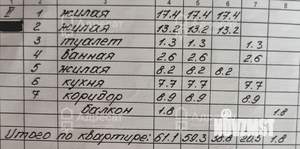 1 2 3 4 5 6 7 8
1 жилая 17.4 17.4 17.4
2 жилая 13.2 13.2 13.2
3 туалет 1.3 1.3 1.3
4 ванная 2.6 2.6 2.6
5 жилая 8.2 8.2 8.2
6 кухня 7.7 7.7 7.7
7 коридор 8.9 8.9 8.9
балкон 1.8 1.8
Итого по квартире: 61.1 59.3 38.8 20.5 1.8